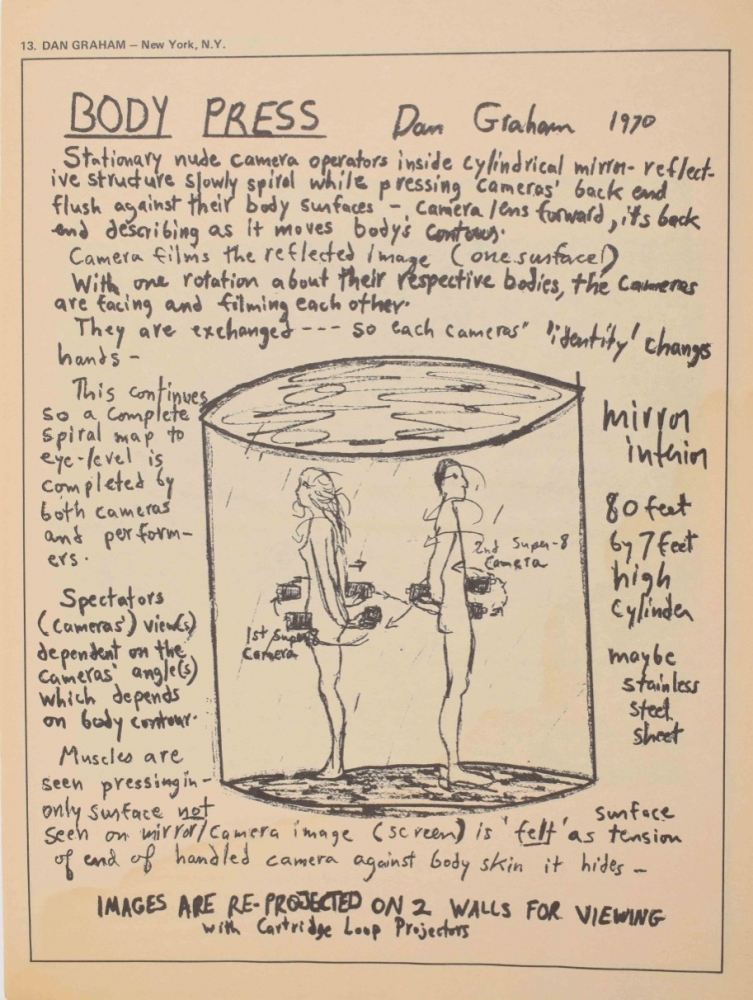 13. DAN GRAHAM — New York, N.Y.
BODY PRESS Dan Graham 1970
Stationary nude camera operators inside cylindrical mirror-reflect-
ive structure slowly spiral while pressing cameras' back end
flush against their body surfaces — camera lens forward, it's back
end describing as it moves body's contours.
Camera films the reflected image (one surface!)
With one rotation about their respective bodies, the cameras
are facing and filming each other.
They are exchanged --- so each cameras" 'identity' changes
hands —
This continues
so a complete
spiral map to
eye-level is
completed by
both cameras
and perform-
ers.
Spectators
(cameras') view(s)
dependent on the
cameras' angle(s)
which depends
on body contour.
Muscles are
seen pressing in-
only surface not
seen on mirror/camera image (screen) is 'felt' as surface tension
of end of handled camera against body skin it hides —
mirror
interior
80 feet
by 7 feet
high
cylinder
maybe
stainless
steel
sheet
2nd Super-8
Camera
1st Super-8
Camera
IMAGES ARE RE-PROJECTED ON 2 WALLS FOR VIEWING
with Cartridge Loop Projectors